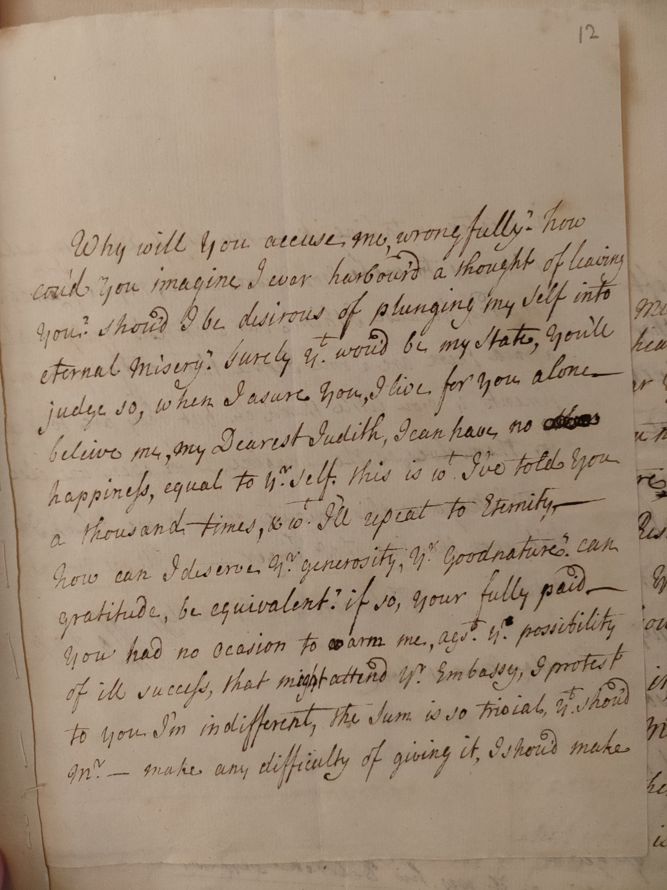 12
Why will you accuse me, wrongfully? how
cou'd you imagine I ever harbour'd a thought of leaving
you? shou'd I be desirous of plunging my self into
eternal misery? surely yt. wou'd be my State, you'll
judge so, when I asure you, I live for you alone—
beleive me, my Dearest Judith, I can have no
happiness, equal to yr. self. this is wt. I've told you
a thousand times, & wt. I'll repeat to Eternity—
how can I deserve yr. generosity, yr. Goodnature? can
gratitude, be equivalent? if so, your fully paid—
you had no ocasion to warm me, agst. ye. possibility
of ill success, that might attend yr. Embassy, I protest
to you I'm indifferent, the Sum is so trivial, yt. shou'd
Mr. — make any difficulty of giving it, I shou'd make